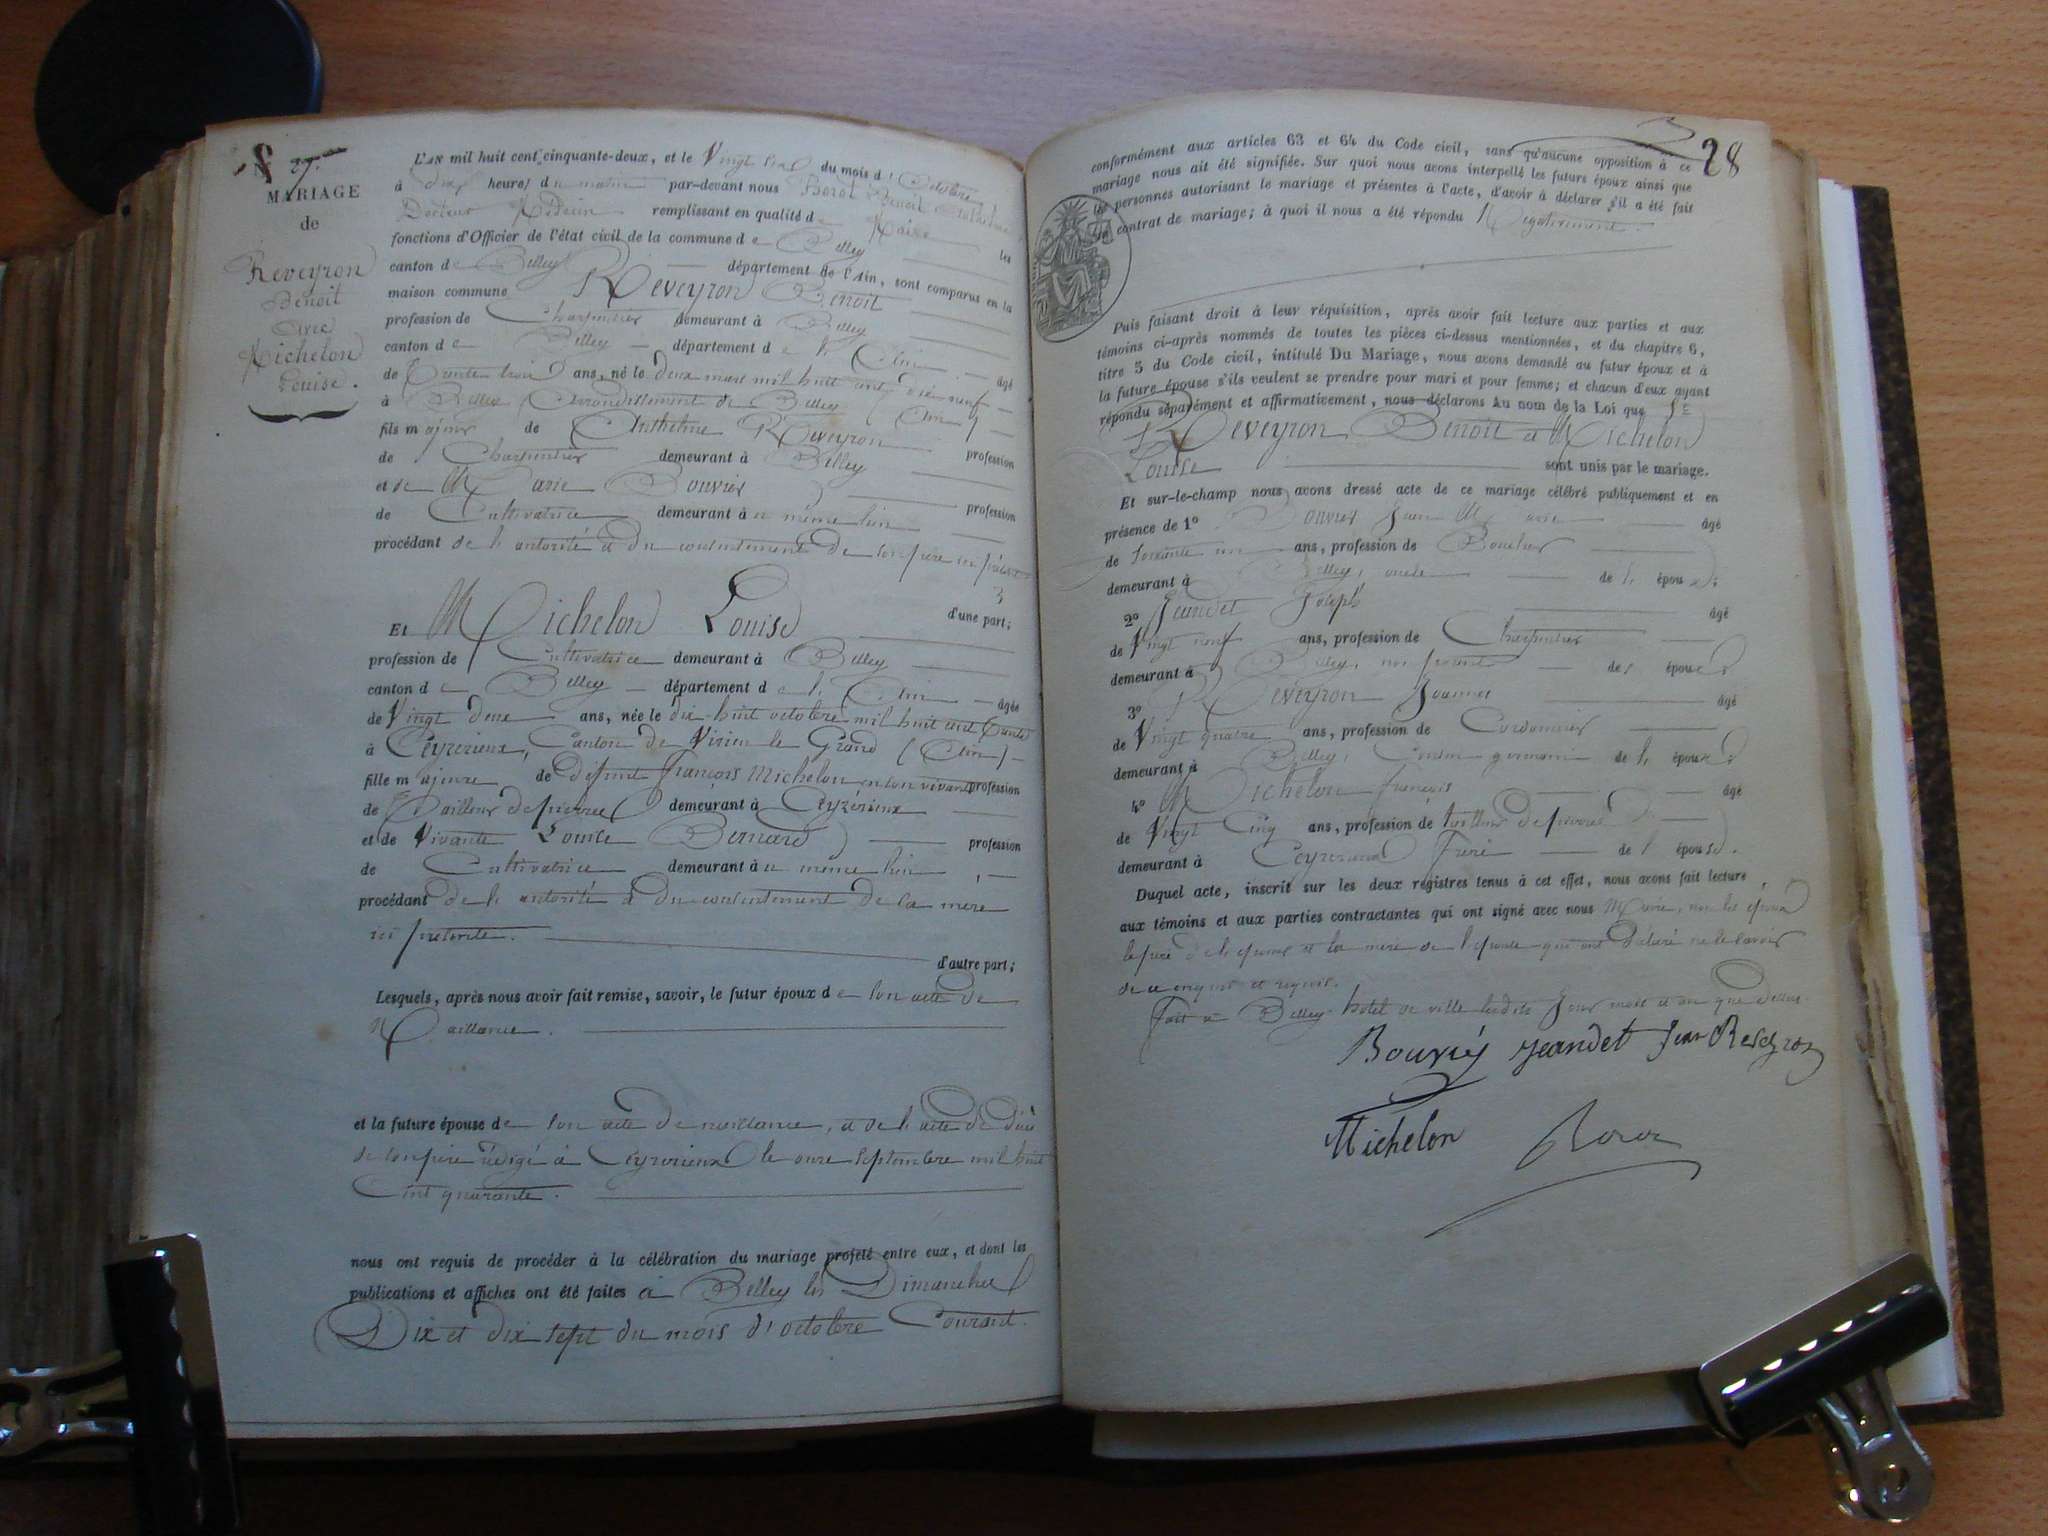 N° 27.
MARIAGE
de
Reveyron
Benoit
avec
Michelon
Louise.
L'AN mil huit cent cinquante-deux, et le Vingt six du mois d'Octobre
à dix heures du matin par-devant nous Benoit
Docteur Médecin remplissant en qualité de Maire les
fonctions d'Officier de l'état civil de la commune de Belley
canton de Belley département de l'Ain, sont comparus en la
maison commune Reveyron Benoit
profession de Charpentier demeurant à Belley
canton de Belley département de l'Ain âgé
de Trente trois ans, né le deux mars mil huit cent dix neuf
à Belley Arrondissement de Belley (Ain)
fils majeur de Anthelme Reveyron profession
de Charpentier demeurant à Belley
et de Marie Bouvier profession
de Cultivatrice demeurant à u même lieu
procédant de l'autorité et du consentement de son père ici présent
d'une part;
Et Michelon Louise
profession de Cultivatrice demeurant à Belley
canton de Belley département de l'Ain âgée
de Vingt deux ans, née le dix huit octobre mil huit cent trente
à Ceyzerieux, Canton de Virieu le Grand (Ain)
fille majeure de défunt François Michelon en son vivant profession
de Tailleur de pierres demeurant à Ceyzerieux
et de Vivante Louise Bernard profession
de Cultivatrice demeurant à u même lieu
procédant de l'autorité et du consentement de sa mère
ici présente.
d'autre part;
Lesquels, après nous avoir fait remise, savoir, le futur époux de son acte de
Naissance.
et la future épouse de son acte de naissance, et de l'acte de décès
de son père rédigé à Ceyzerieux le onze septembre mil huit
Cent quarante.
nous ont requis de procéder à la célébration du mariage projeté entre eux, et dont les
publications et affiches ont été faites à Belley les Dimanches
Dix et dix sept du mois d'octobre Courant.
28
conformément aux articles 63 et 64 du Code civil, sans qu'aucune opposition à ce
mariage nous ait été signifiée. Sur quoi nous avons interpellé les futurs époux ainsi que
les personnes autorisant le mariage et présentes à l'acte, d'avoir à déclarer s'il a été fait
un contrat de mariage; à quoi il nous a été répondu Négativement.
Puis faisant droit à leur réquisition, après avoir fait lecture aux parties et aux
témoins ci-après nommés de toutes les pièces ci-dessus mentionnées, et du chapitre 6,
titre 5 du Code civil, intitulé Du Mariage, nous avons demandé au futur époux et à
la future épouse s'ils veulent se prendre pour mari et pour femme; et chacun d'eux ayant
répondu séparément et affirmativement, nous déclarons au nom de la Loi que
Reveyron Benoit et Michelon
Louise sont unis par le mariage.
Et sur-le-champ nous avons dressé acte de ce mariage célébré publiquement et en
présence de 1° Bouvier Jean Marie âgé
de soixante un ans, profession de Boucher
demeurant à Belley, oncle de l'époux;
2° Jeandet Joseph âgé
de Vingt neuf ans, profession de Charpentier
demeurant à Belley, non parent des époux;
3° Reveyron Joannes âgé
de Vingt quatre ans, profession de Cordonnier
demeurant à Belley, Cousin germain de l'époux;
4° Michelon François âgé
de Vingt Cinq ans, profession de tailleur de pierres
demeurant à Ceyzerieux frère de l'épouse.
Duquel acte, inscrit sur les deux registres tenus à cet effet, nous avons fait lecture
aux témoins et aux parties contractantes qui ont signé avec nous Maire, non les époux
le père de l'époux et la mère de l'épouse qui ont déclaré ne le savoir
de ce enquis et requis.
Fait à Belley hôtel de ville lesdits Jour mois et an que dessus.
Bouvié Jeandet Jean Reveyron
Michelon